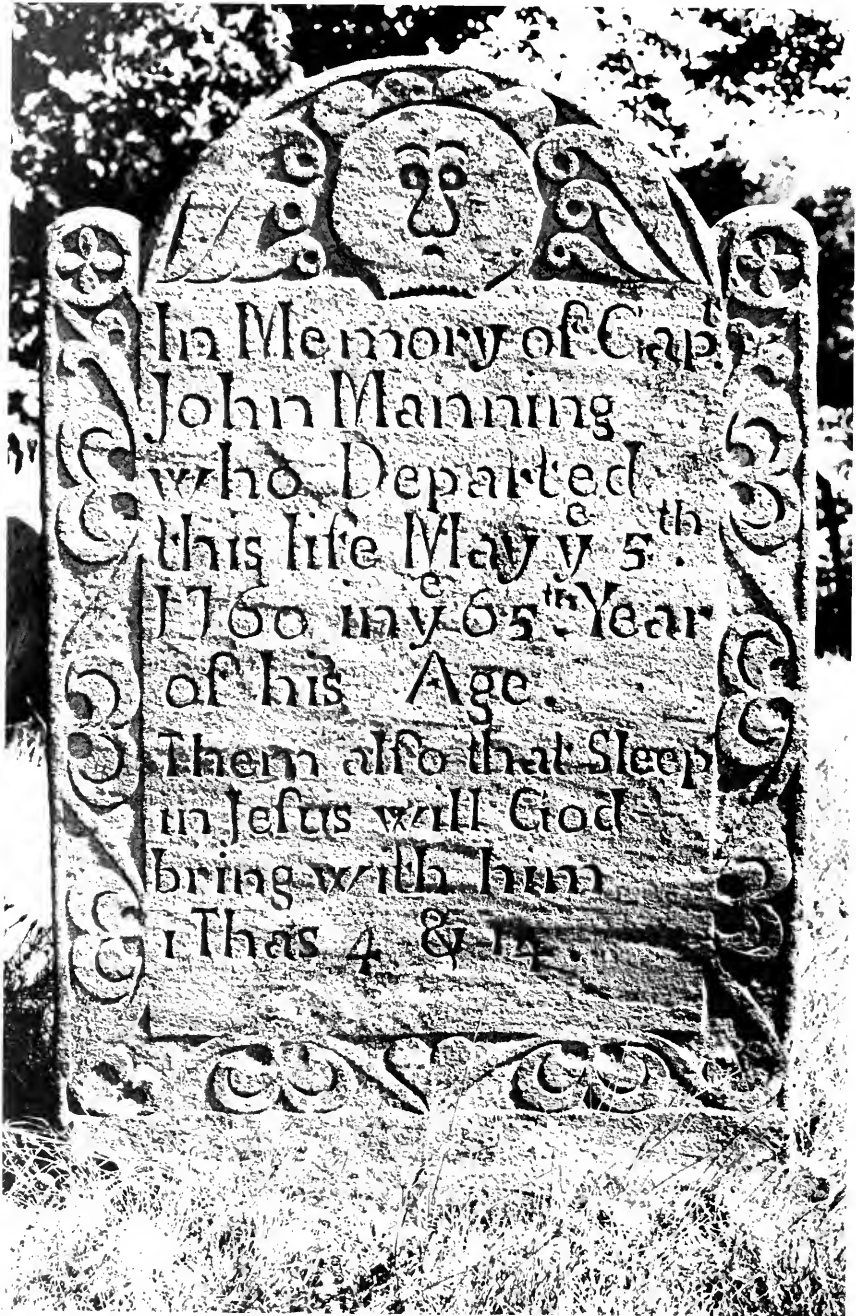 In Memory of Capᵗ
John Manning
who Departed
this life May yᵉ 5ᵗʰ.
1760 in yᵉ 65ᵗʰ Year
of his Age.
Them alſo that Sleep
in Jeſus will God
bring with him
1 Thas 4 & 14.